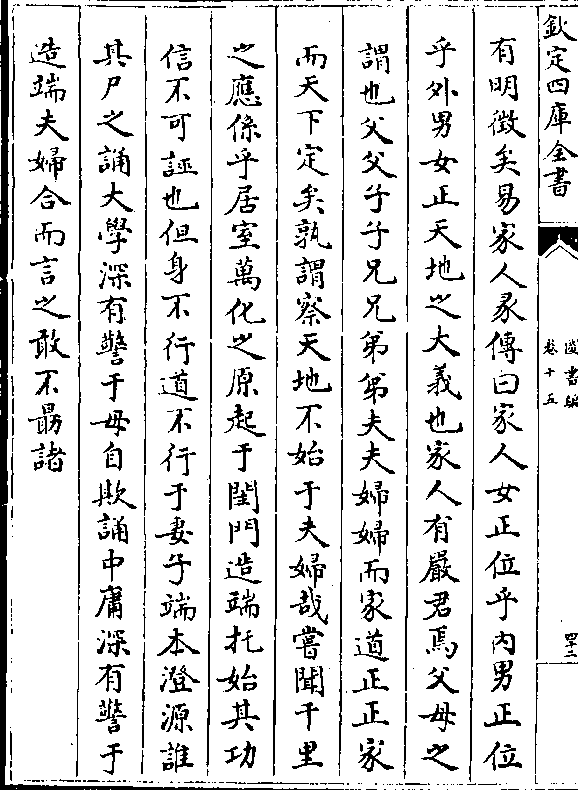 欽定四庫全書
圖書編
卷十五
四十二
有明徵矣易家人彖傳曰家人女正位乎内男正位
乎外男女正天地之大義也家人有嚴君焉父母之
謂也父父子子兄兄弟弟夫夫婦婦而家道正正家
而天下定矣孰謂察天地不始于夫婦哉嘗聞千里
之應係乎居室萬化之原起于閨門造端托始其功
信不可誣也但身不行道不行于妻子端本澄源誰
其尸之誦大學深有警于毋自欺誦中庸深有警于
造端夫婦合而言之敢不勗諸